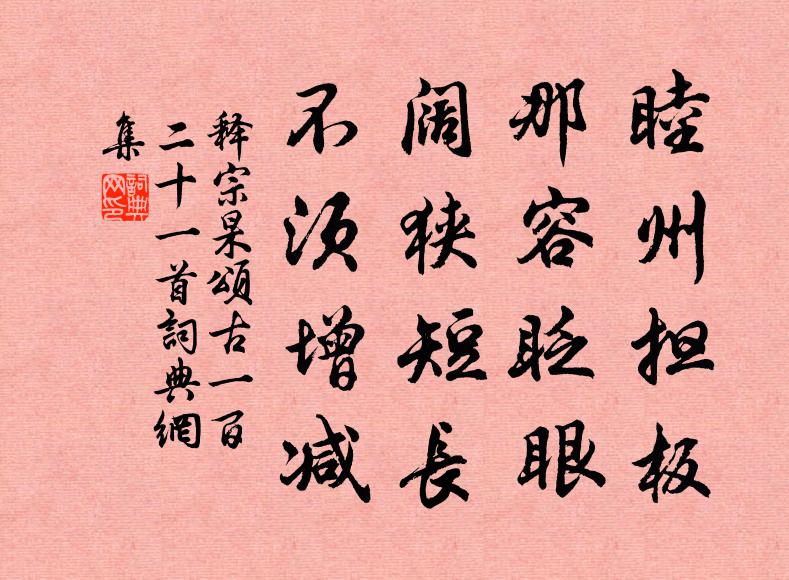 睦州担板
那容眨眼
阔狭短長
不須增减
释宗杲頌古一百
二十一首詞典網
集
詞典
网印